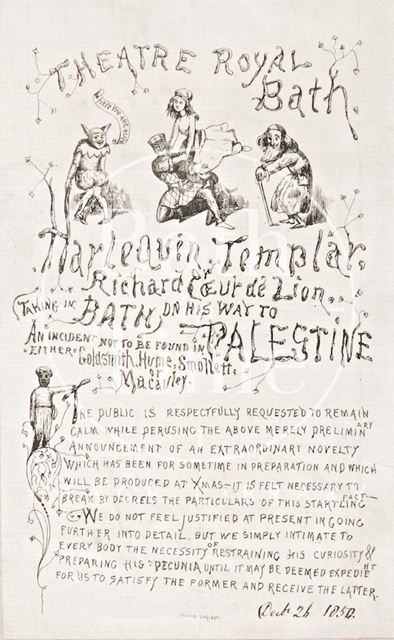 THEATRE ROYAL
Bath
HERE WE ARE AGAIN
Harlequin Templar,
Richard Cœur de Lion.
TAKING IN BATH ON HIS WAY TO
PALESTINE
AN INCIDENT NOT TO BE FOUND IN
EITHER Goldsmith, Hume, Smollett,
or
Macauley.
THE PUBLIC IS RESPECTFULLY REQUESTED TO REMAIN
CALM WHILE PERUSING THE ABOVE MERELY PRELIMINARY
ANNOUNCEMENT OF AN EXTRAORDINARY NOVELTY
WHICH HAS BEEN FOR SOMETIME IN PREPARATION AND WHICH
WILL BE PRODUCED AT XMAS—IT IS FELT NECESSARY TO
BREAK BY DECREES THE PARTICULARS OF THIS STARTLING FACT—
WE DO NOT FEEL JUSTIFIED AT PRESENT IN GOING
FURTHER INTO DETAIL, BUT WE SIMPLY INTIMATE TO
EVERY BODY THE NECESSITY OF RESTRAINING HIS CURIOSITY &
PREPARING HIS PECUNIA UNTIL IT MAY BE DEEMED EXPEDIENT
FOR US TO SATISFY THE FORMER AND RECEIVE THE LATTER.
Decbr 26 1850.